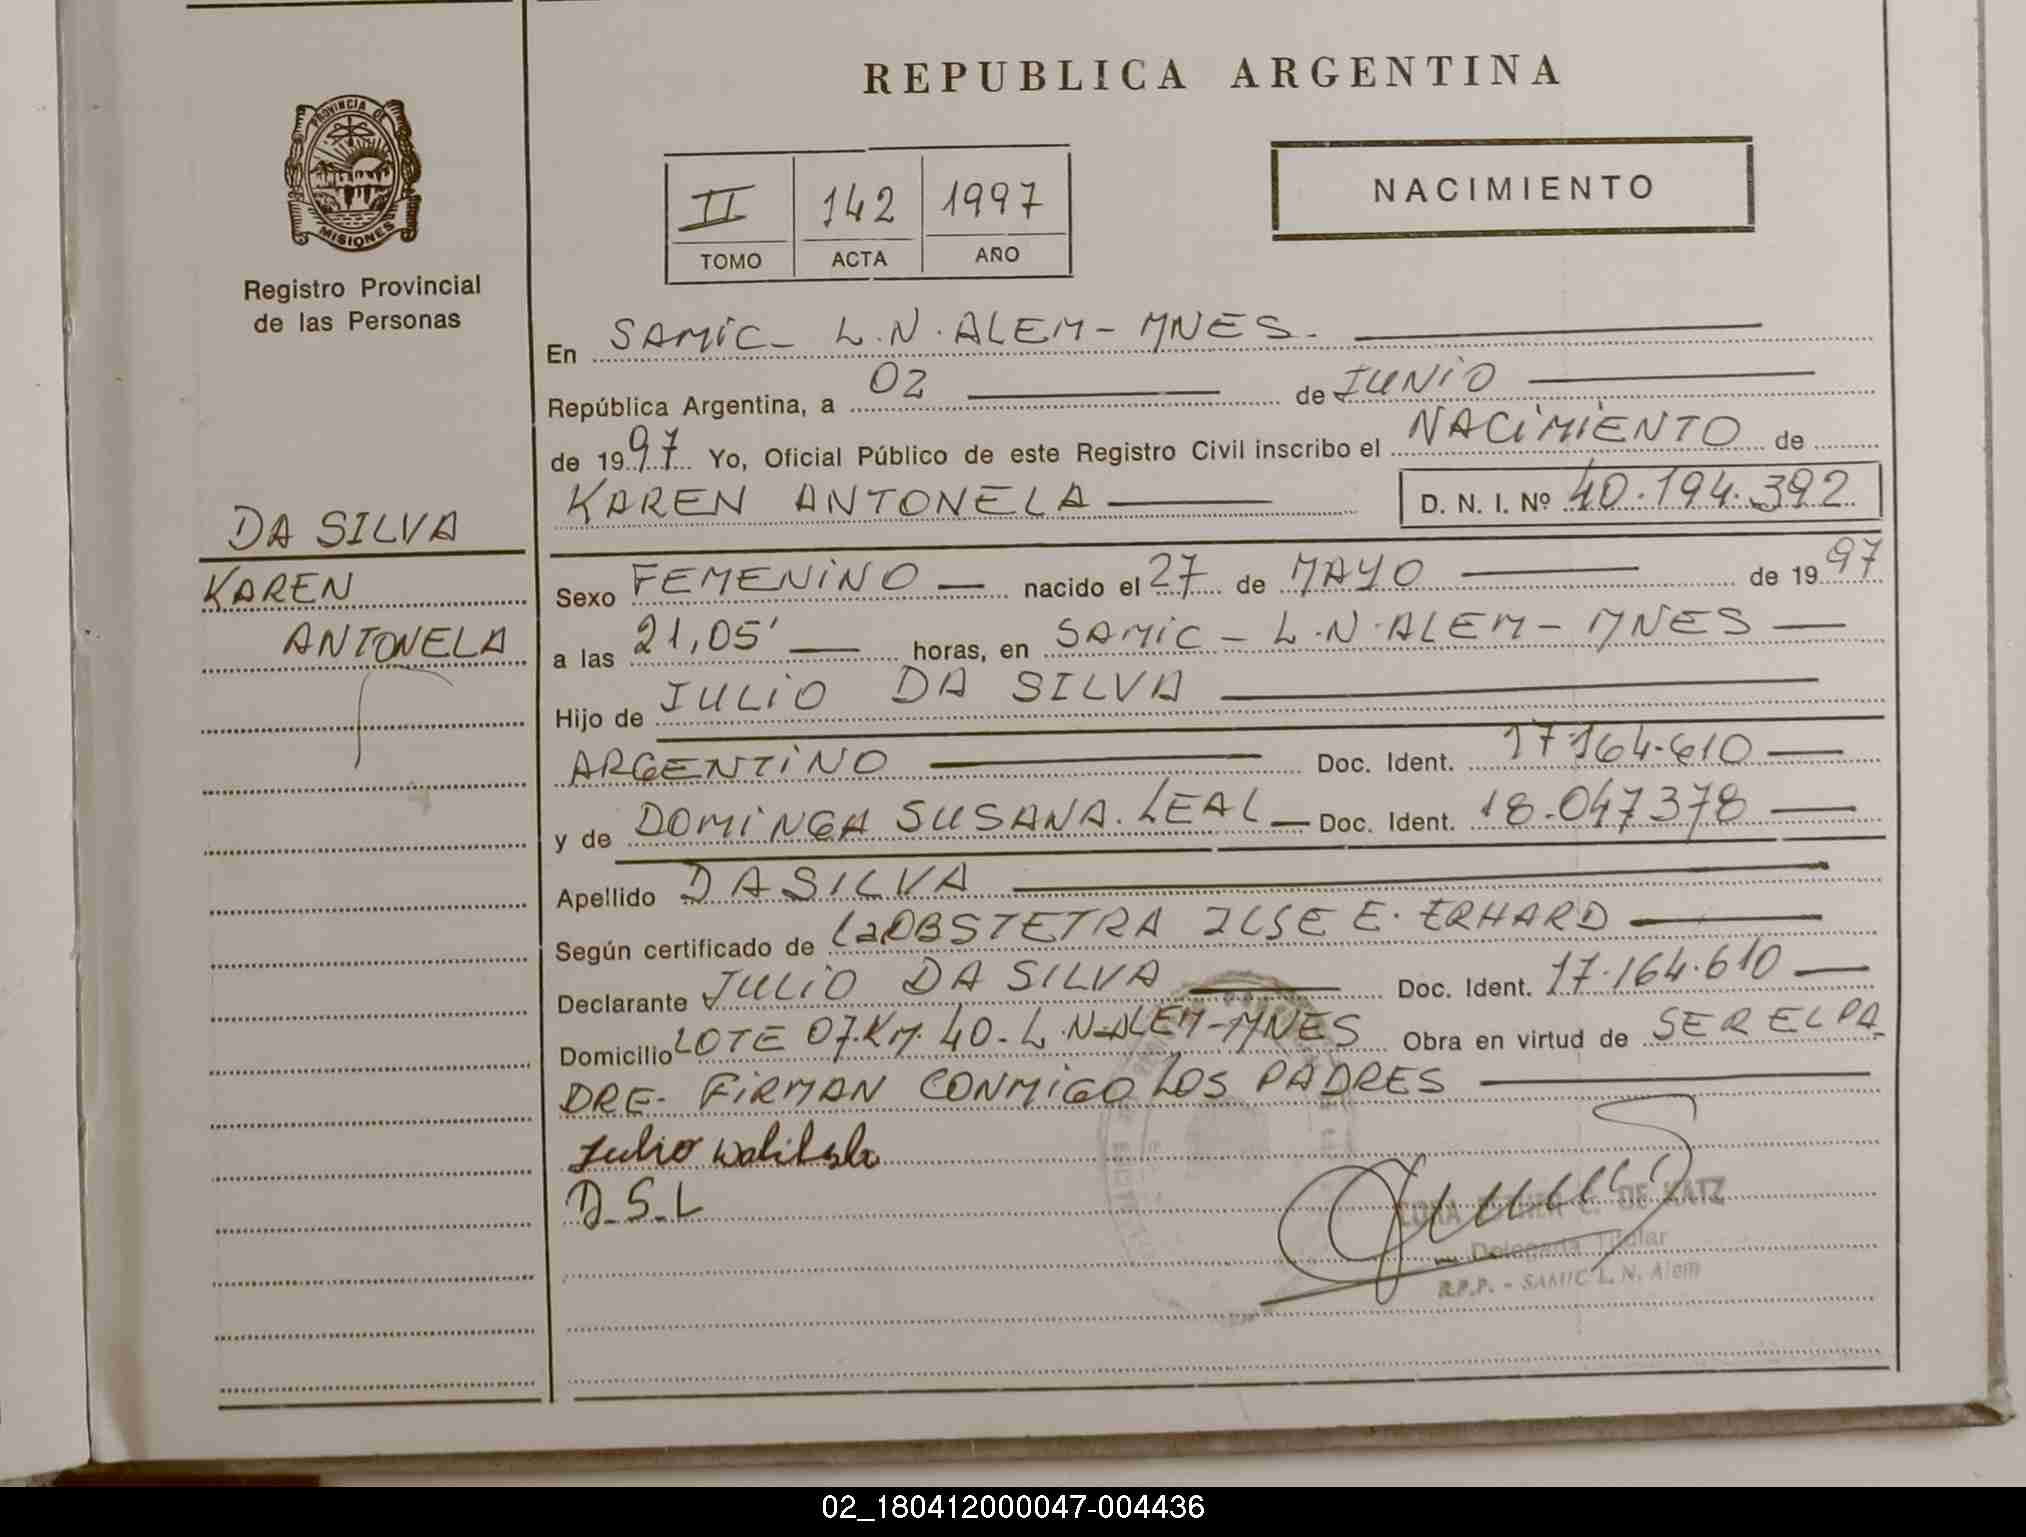 REPUBLICA ARGENTINA
PROVINCIA DE
MISIONES
Registro Provincial
de las Personas
II 142 1997
TOMO ACTA AÑO
NACIMIENTO
En SAMIC - L.N. ALEM - MNES.
República Argentina, a 02 de JUNIO
de 1997 Yo, Oficial Público de este Registro Civil inscribo el NACIMIENTO de
KAREN ANTONELA D. N. I. Nº 40.194.392
DA SILVA
KAREN
ANTONELA
Sexo FEMENINO nacido el 27 de MAYO de 1997
a las 21,05' horas, en SAMIC - L.N. ALEM - MNES
Hijo de JULIO DA SILVA
ARGENTINO Doc. Ident. 17.164.610
y de DOMINGA SUSANA LEAL Doc. Ident. 18.047378
Apellido DA SILVA
Según certificado de La OBSTETRA ILSE E. ERHARD
Declarante JULIO DA SILVA Doc. Ident. 17.164.610
Domicilio LOTE 07.KM. 40 - L.N-ALEM-MNES Obra en virtud de SER EL PA-
DRE - FIRMAN CONMIGO LOS PADRES
Julio
D-S-L
C. DE KATZ
Delegada Titular
R.P.P. - SAMIC L. N. Alem
02_180412000047-004436